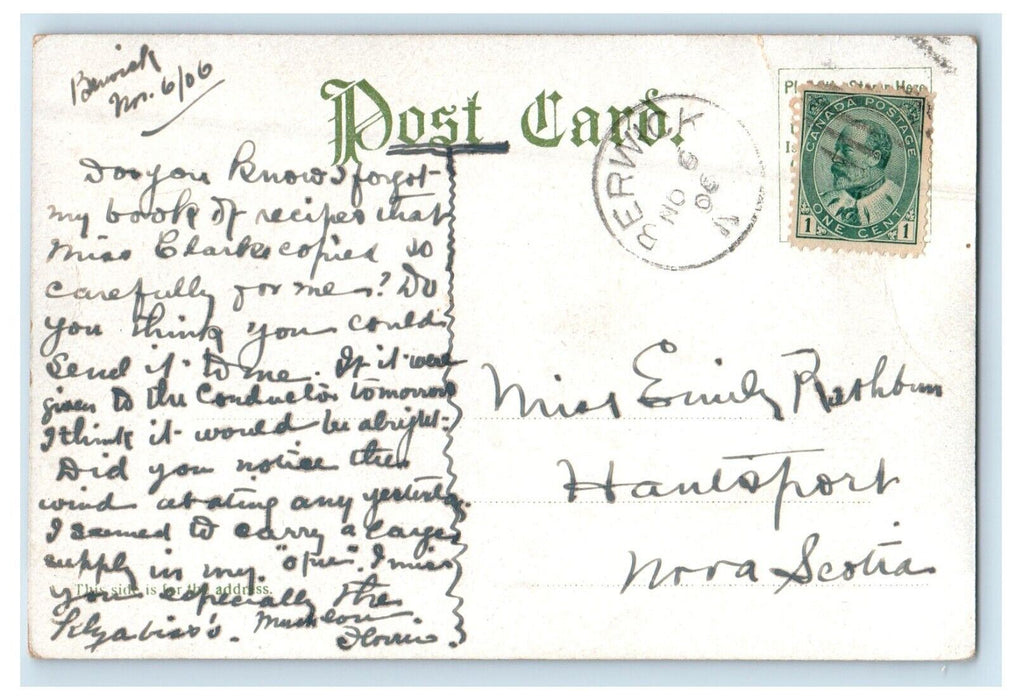 Berwick
Nov. 6/06
Post Card.
Do you know I forgot
my book of recipes that
Miss Clark copied so
carefully for me? Do
you think you could
send it to me. If it were
given to the Conductor tomorrow
I think it would be alright.
Did you notice the
wind abating any yesterday.
I seemed to carry a large
supply in my I miss
you especially the
Much love
Florrie
This side is for the address.
BERWICK
NO 6
06
CANADA POSTAGE
ONE CENT
1 1
Miss Emily Rathbun
Hantsport
Nova Scotia